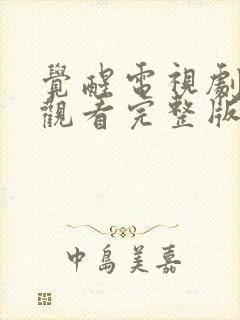 覺醒電視劇
觀看完整版
中島美嘉